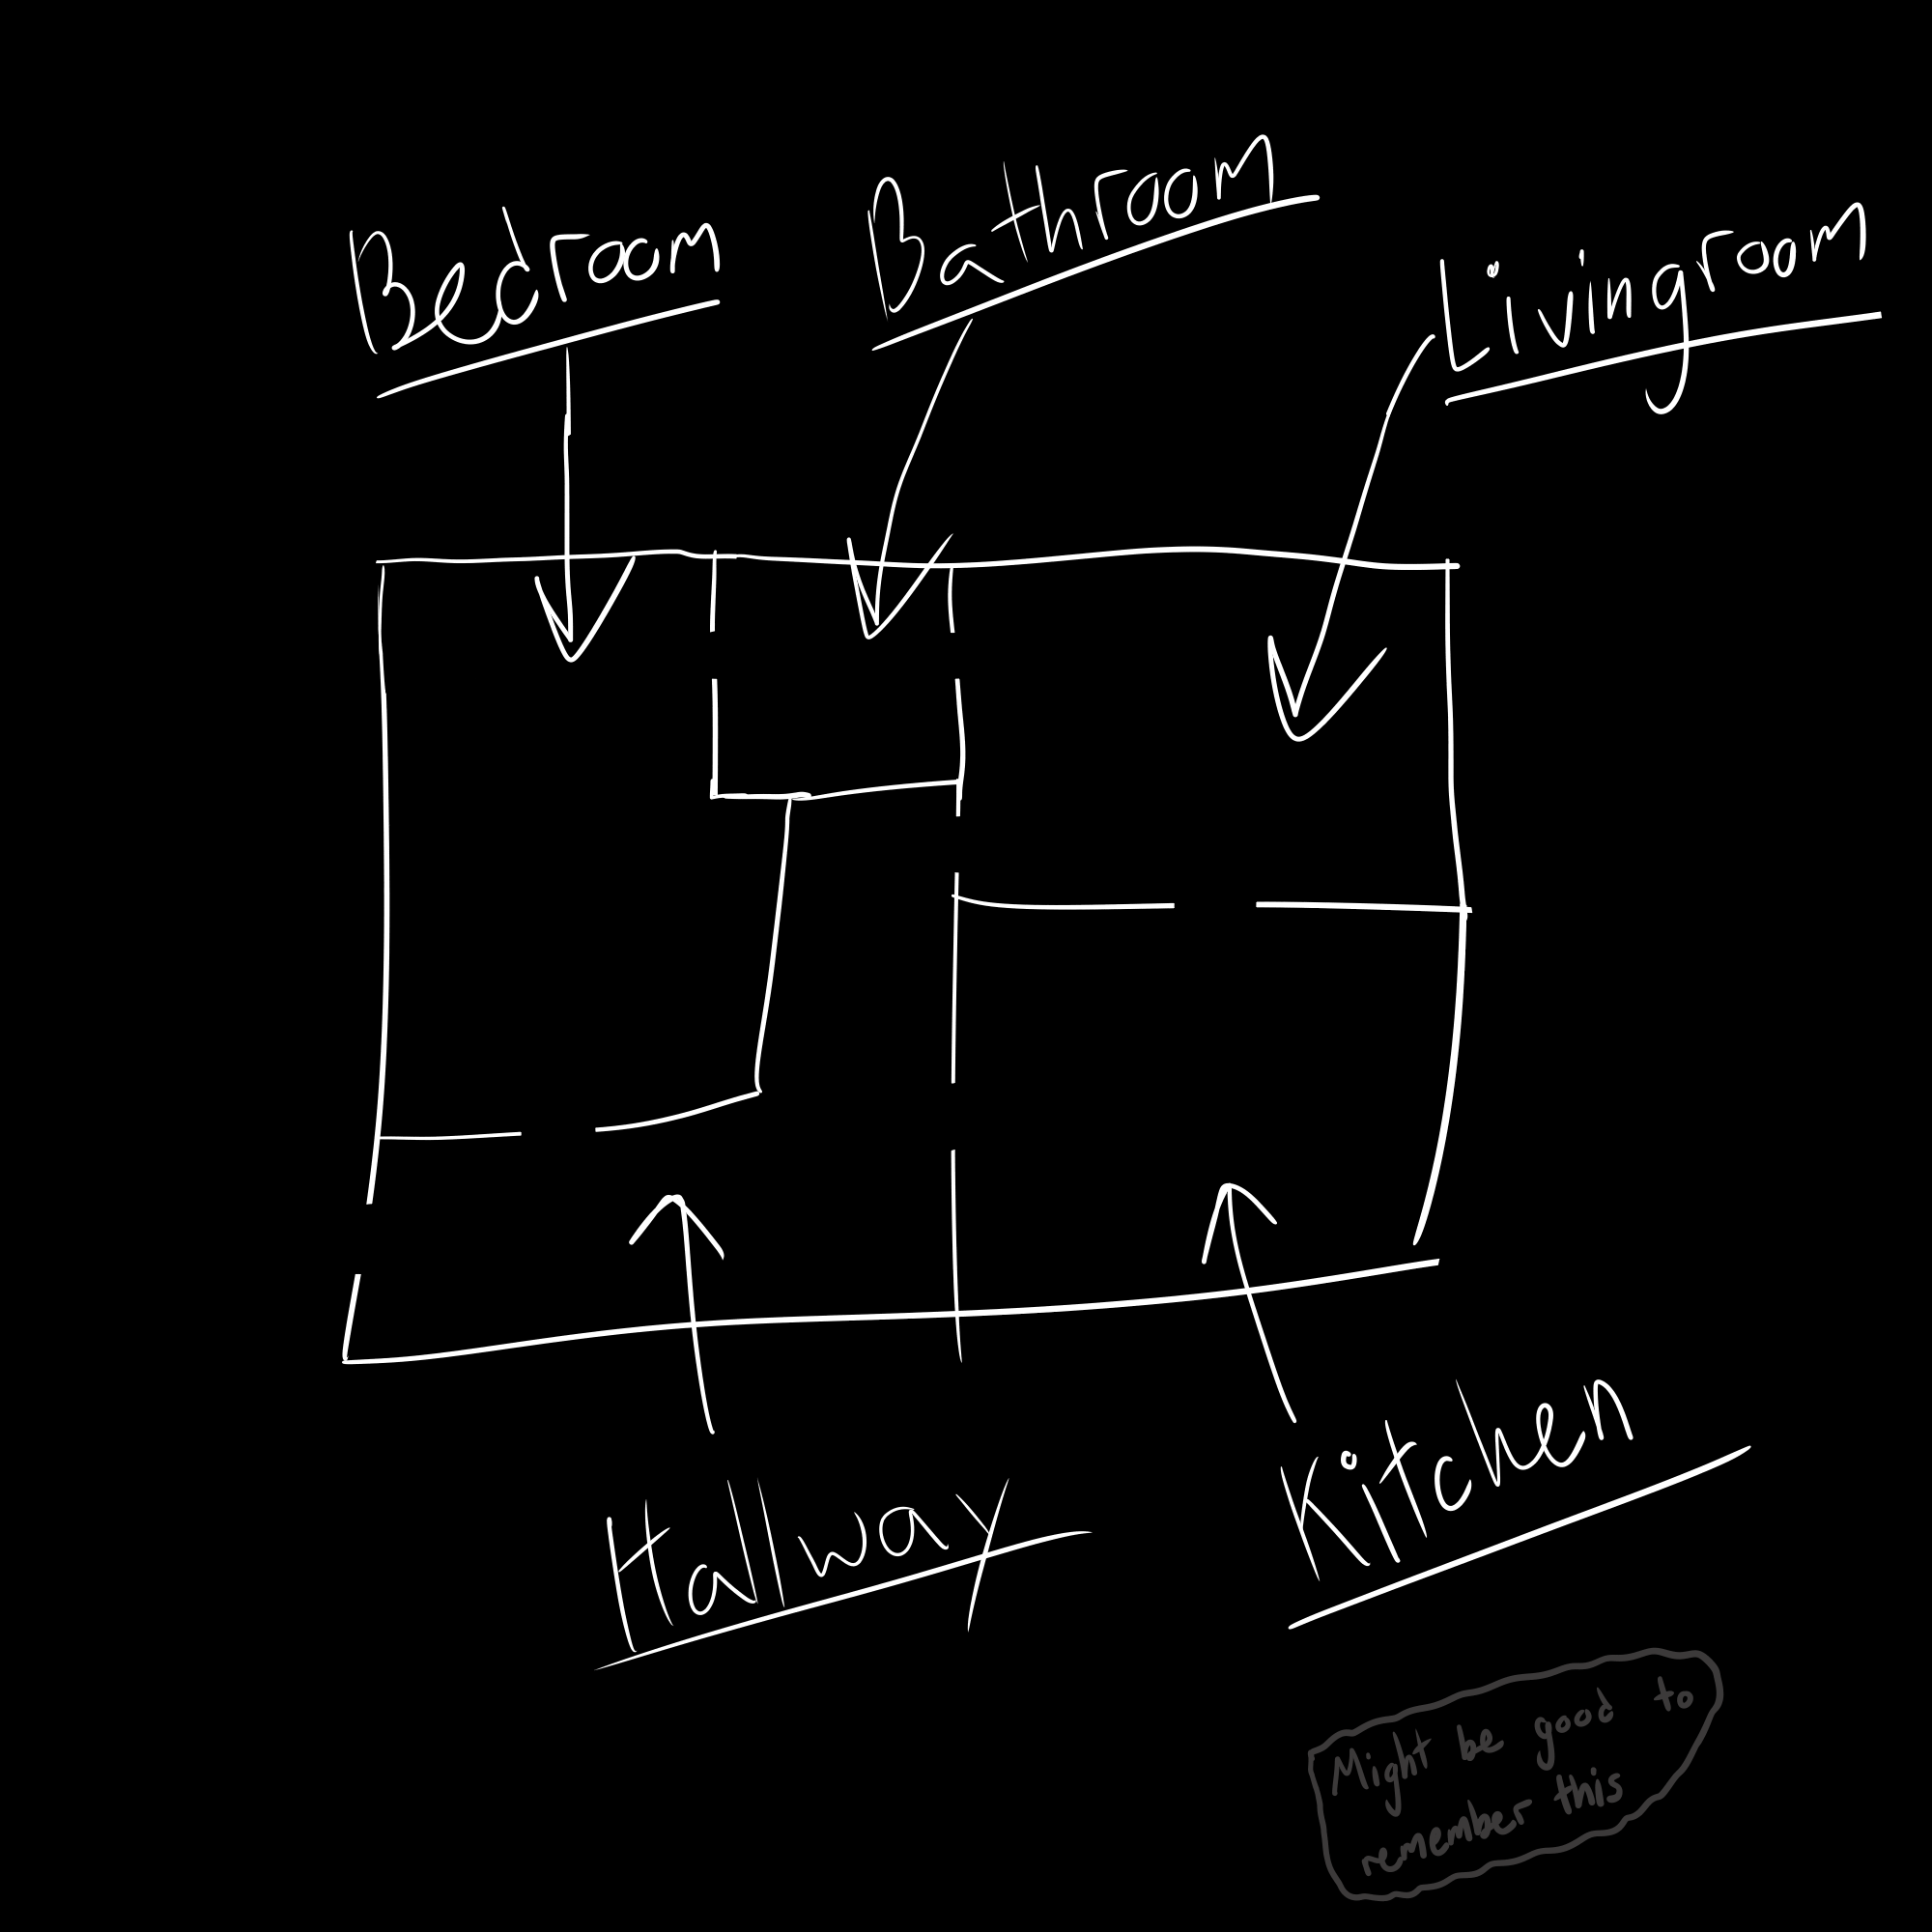 Bedroom
Bathroom
Livingroom
Hallway
Kitchen
Might be good to
remember this